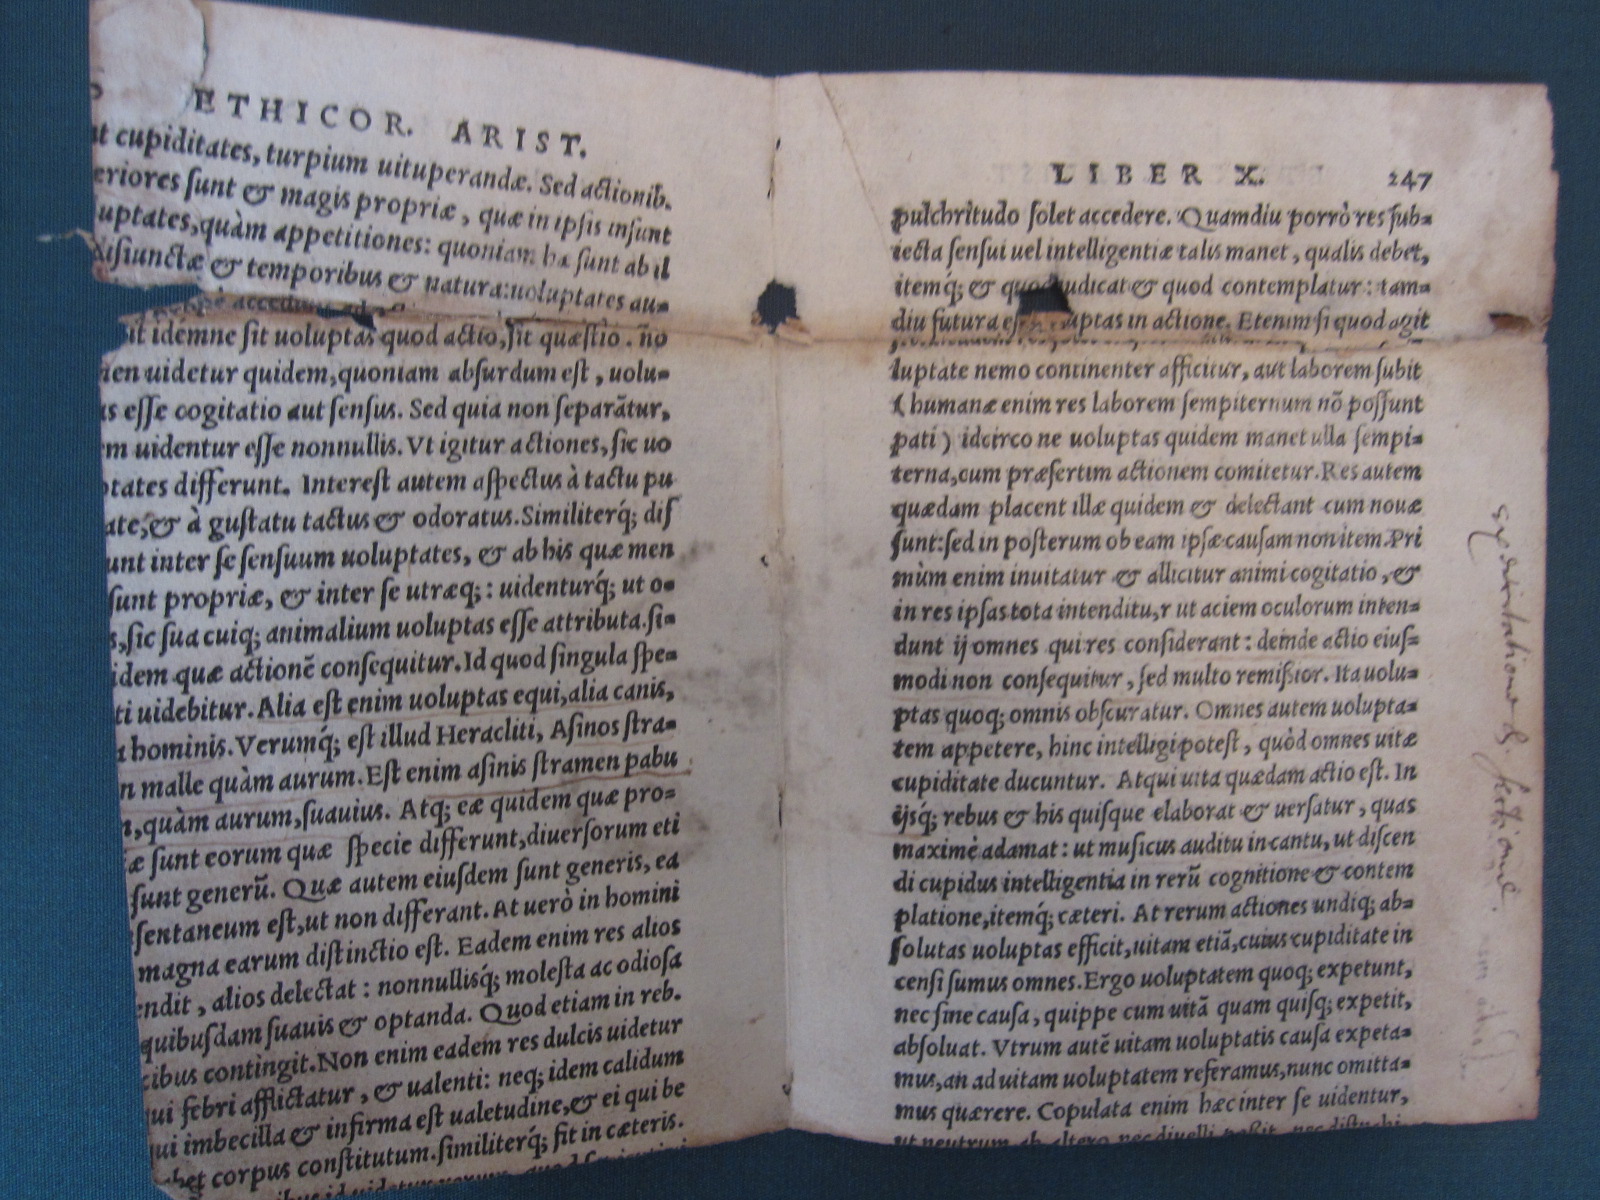 ETHICOR. ARIST.
cupiditates, turpium uituperandæ. Sed actionib.
eriores sunt & magis propriæ, quæ in ipsis insunt
uptates, quàm appetitiones: quoniam hæ sunt ab il
disiunctæ & temporibus & natura: uoluptates au-
accedunt
sit idemne sit uoluptas quod actio, sit quæstio. nõ
men uidetur quidem, quoniam absurdum est, uolu-
as esse cogitatio aut sensus. Sed quia non separãtur,
em uidentur esse nonnullis. Vt igitur actiones, sic uo
ptates differunt. Interest autem aspectus à tactu pu
ate, & à gustatu tactus & odoratus. Similiterq́; dis
unt inter se sensuum uoluptates, & ab his quæ men
sunt propriæ, & inter se utræq;: uidenturq́; ut o-
s, sic sua cuiq; animalium uoluptas esse attributa. si-
idem quæ actionẽ consequitur. Id quod singula spe-
ti uidebitur. Alia est enim uoluptas equi, alia canis,
a hominis. Verumq́; est illud Heracliti, Asinos stra-
n malle quàm aurum. Est enim asinis stramen pabu
n, quàm aurum, suauius. Atq; eæ quidem quæ pro-
æ sunt eorum quæ specie differunt, diuersorum eti
sunt generũ. Quæ autem eiusdem sunt generis, ea
sentaneum est, ut non differant. At uerò in homini
magna earum distinctio est. Eadem enim res alios
endit, alios delectat: nonnullisq́; molesta ac odiosa
quibusdam suauis & optanda. Quod etiam in reb.
cibus contingit. Non enim eadem res dulcis uidetur
qui febri afflictatur, & ualenti: neq; idem calidum
qui imbecilla & infirma est ualetudine, & ei qui be
habet corpus constitutum. similiterq́; fit in cæteris.
LIBER X. 247
pulchritudo solet accedere. Quamdiu porrò res sub-
iecta sensui uel intelligentiæ talis manet, qualis debet,
itemq́; & quod iudicat & quod contemplatur: tam-
diu futura est uoluptas in actione. Etenim si quod agit
luptate nemo continenter afficitur, aut laborem subit
(humanæ enim res laborem sempiternum nõ possunt
pati) idcirco ne uoluptas quidem manet ulla sempi-
terna, cum præsertim actionem comitetur. Res autem
quædam placent illæ quidem & delectant cum nouæ
sunt: sed in posterum ob eam ipsæ causam non item. Pri
mùm enim inuitatur & allicitur animi cogitatio, &
in res ipsas tota intenditu,r ut aciem oculorum inten-
dunt ij omnes qui res considerant: deinde actio eius-
modi non consequitur, sed multo remissior. Ita uolu-
ptas quoq; omnis obscuratur. Omnes autem uolupta-
tem appetere, hinc intelligi potest, quòd omnes uitæ
cupiditate ducuntur. Atqui uita quædam actio est. In
ijsq́; rebus & his quisque elaborat & uersatur, quas
maximè adamat: ut musicus auditu in cantu, ut discen
di cupidus intelligentia in rerũ cognitione & contem
platione, itemq́; cæteri. At rerum actiones undiq; ab-
solutas uoluptas efficit, uitam etiã, cuius cupiditate in
censi sumus omnes. Ergo uoluptatem quoq; expetunt,
nec sine causa, quippe cum uitã quam quisq; expetit,
absoluat. Vtrum autẽ uitam uoluptatis causa expeta-
mus, an ad uitam uoluptatem referamus, nunc omitta-
mus quærere. Copulata enim hæc inter se uidentur,
ut neutrum ab altero nec diuelli possit, nec